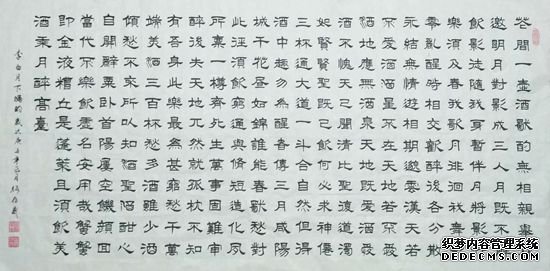 花間一壺酒獨酌無相親舉杯
邀明月對影成三人月既不解
飲影徒隨我身暫伴月將影行
樂須及春我歌月徘徊我舞影
零亂醒時相交歡醉後各分散
永結無情遊相期邈雲漢天若
不愛酒酒星不在天地若不愛
酒地應無酒泉天地既愛酒愛
酒不愧天已聞清比聖復道濁
如賢賢聖既已飲何必求神僊
三杯通大道一斗合自然但得
酒中趣勿為醒者傳三月咸陽
城千花晝如錦誰能春獨愁對
此徑須飲窮通與脩短造化夙
所稟一樽齊死生萬事固難審
醉後失天地兀然就孤枕不知
有吾身此樂最為甚窮愁千萬
端美酒三百杯愁多酒雖少酒
傾愁不來所以知酒聖酒酣心
自開辭粟臥首陽屢空飢顏回
當代不樂飲虛名安用哉蟹螯
即金液糟丘是蓬萊且須飲美
酒乘月醉高臺
李白月下獨酌 歲次庚子年
织梦内容管理系统
DEDECMS.COM